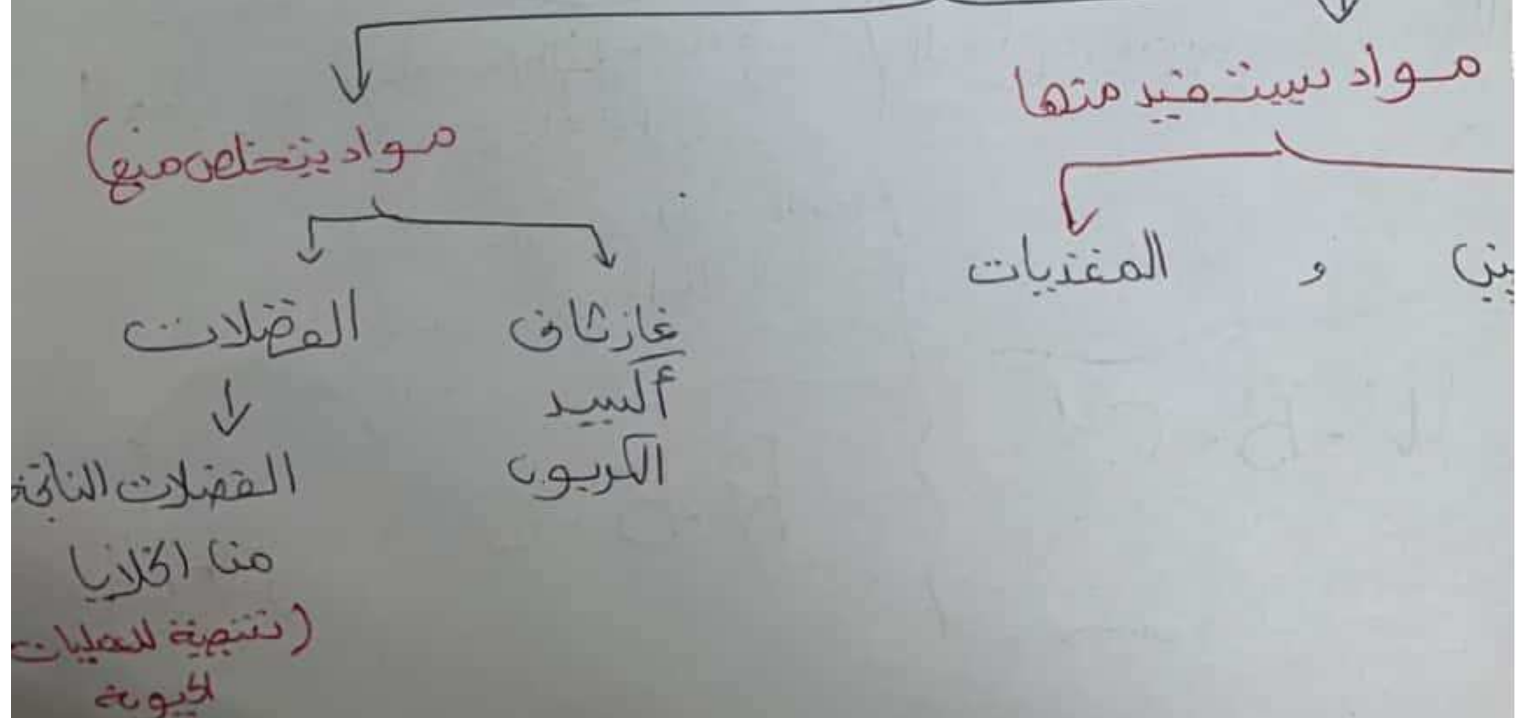 مواد يستفيد منها
مواد يتخلص منها
ين و المغذيات
غاز ثانى
أكسيد
الكربون
الفضلات
الفضلات الناتجة
من الخلايا
(نتيجة للعمليات
الحيوية